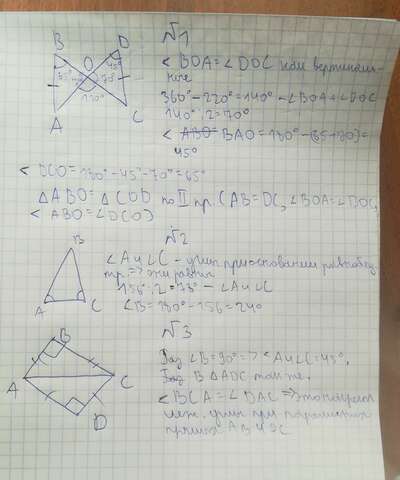 №1
B
D
O
45°
65°
70°
70°
110°
A
C
< BOA = ∠DOC как вертикаль-
ные
360° - 220° = 140° - ∠BOA + ∠DOC
140° : 2 = 70°
< BAO = 180° - (65+70) =
45°
< DCO = 180° - 45° - 70° = 65°
△ABO = △COD по II пр. (AB = DC, ∠BOA = ∠DOC,
< ABO = ∠DCO)
№2
B
A
C
∠A и ∠C - углы при основании равнобед.
тр. => они равны
156° : 2 = 78° - ∠A и ∠C
∠B = 180° - 156 = 24°
№3
B
A
C
D
Раз ∠B = 90° => < A и ∠C = 45°,
Раз в △ADC так же.
< BCA = ∠DAC => это накрест
леж. углы при параллельных
прямых AB и DC